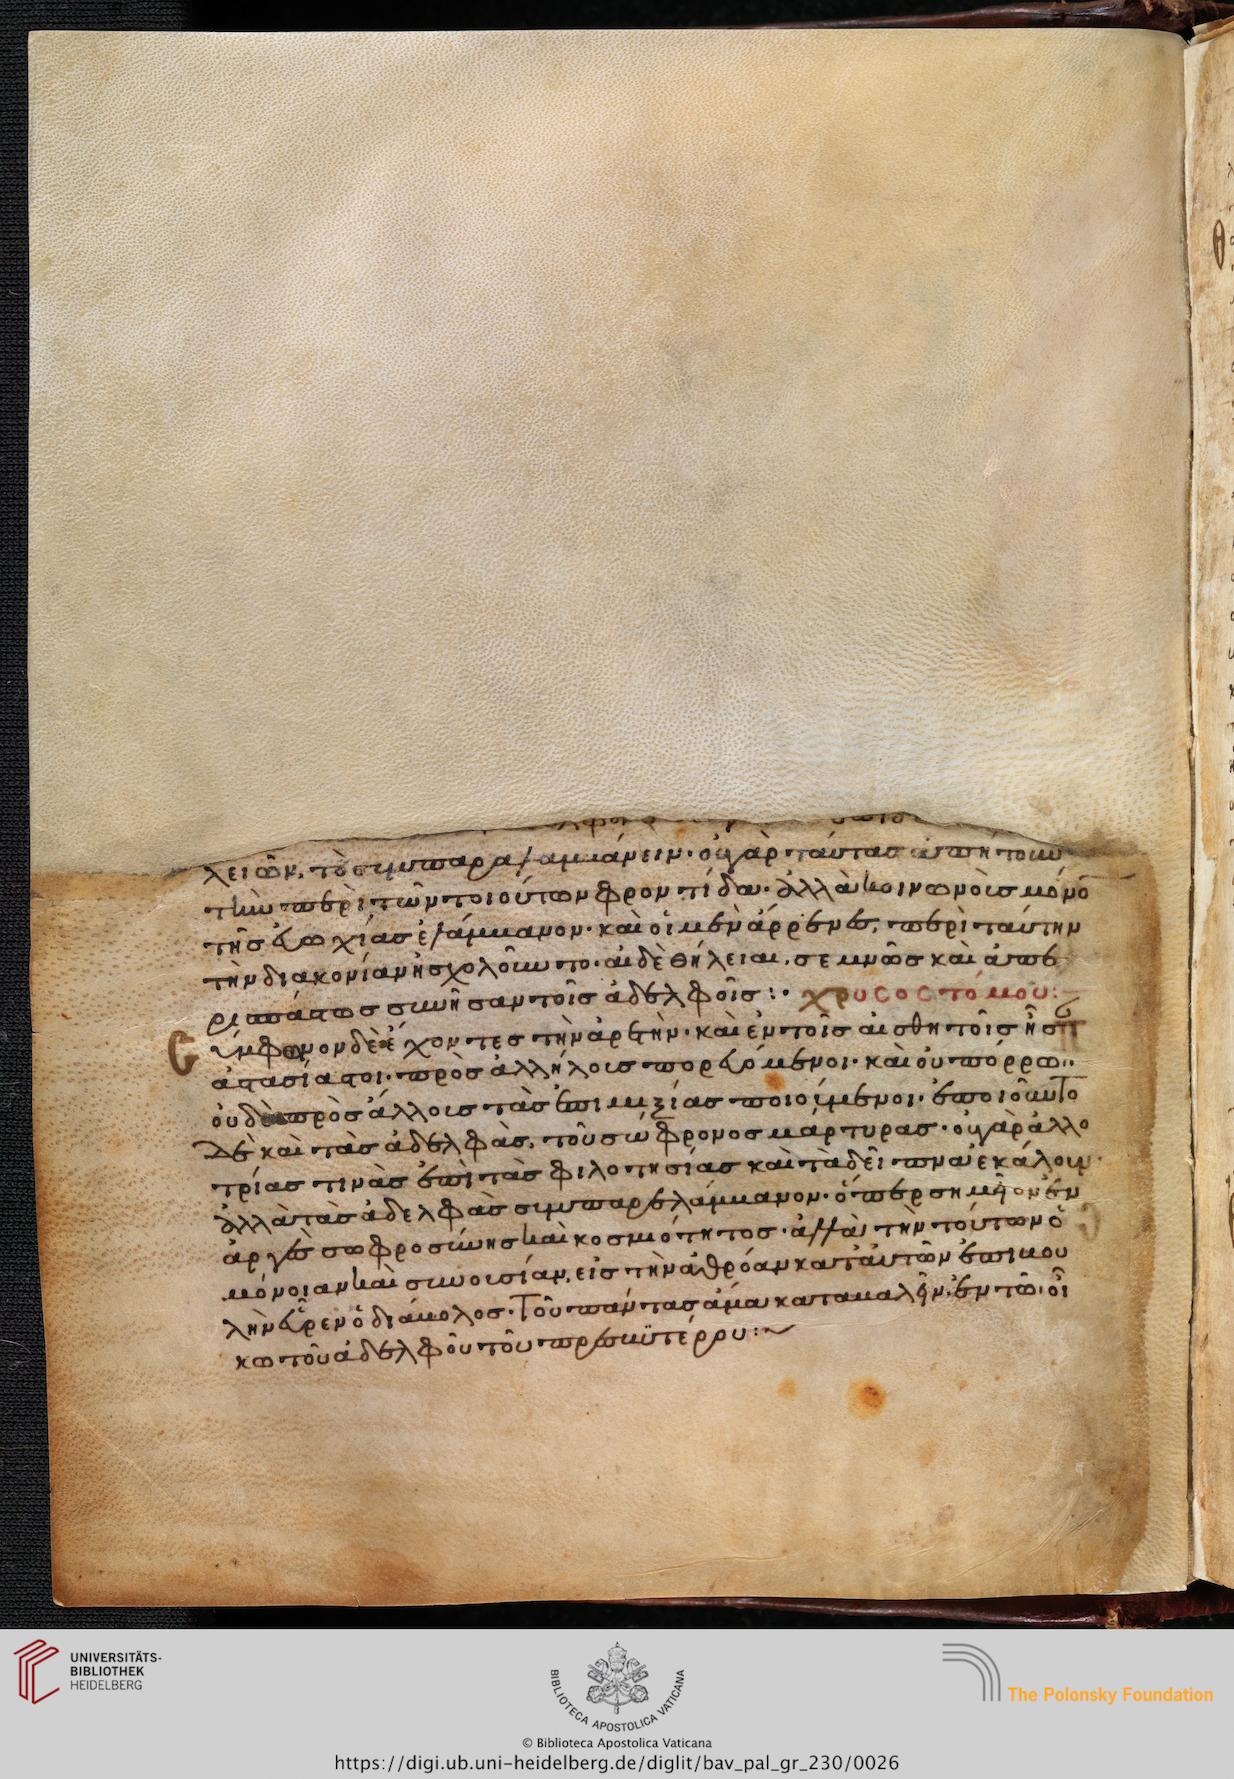 λειῶν, τὸ συμπαραλαμβάνειν· οὐ γὰρ ταύτας ἀπῄτουν
τὴν περὶ τῶν τοιούτων φροντίδα· ἀλλὰ κοινωνοὺς μόνο
τῆς εὐωχίας ἐλάμβανον· καὶ οἱ μὲν ἄρρενες, περὶ ταύτην
τὴν διακονίαν ἠσχολοῦντο· αἱ δὲ θήλειαι, σεμνῶς καὶ ἀπε
ριπάτως συνῆσαν τοῖς ἀδελφοῖς :· χρυσοστόμου:
Σύμφωνον δὲ ἔχοντες τὴν ἀρετὴν· καὶ ἐν τοῖς αἰσθητοῖς ἦσαν
ἀστασίαστοι· πρὸς ἀλλήλοις πορευόμενοι· καὶ οὐ πόρρω··
οὐδὲ πρὸς ἄλλοις τὰς ἐπιμιξίας ποιούμενοι· ἐποιοῦντο
δὲ καὶ τὰς ἀδελφὰς, τοῦ σώφρονος μάρτυρας· οὐ γὰρ ἀλλο
τρίας τινὰς ἐπὶ τὰς φιλοτησίας καὶ τὰ δεῖπνα ἐκάλουν·
ἀλλὰ τὰς ἀδελφὰς συμπαρελάμβανον· ὅπερ σημεῖον ἐν
ἀργὲς σωφροσύνης καὶ κοσμιότητος· ἀλλὰ τὴν τούτων ὁ
μόνοιαν καὶ συνουσίαν, εἰς τὴν ἀθρόαν κατ' αὐτῶν ἐπιβου
λὴν εὗρεν ὁ διάβολος· τοῦ πάντας ἅμα καταβαλεῖν· ἐν τῷ οἴ
κῳ τοῦ ἀδελφοῦ τοῦ πρεσβϋτέρου :~
UNIVERSITÄTS-
BIBLIOTHEK
HEIDELBERG
BIBLIOTECA APOSTOLICA VATICANA
The Polonsky Foundation
© Biblioteca Apostolica Vaticana
https://digi.ub.uni-heidelberg.de/diglit/bav_pal_gr_230/0026